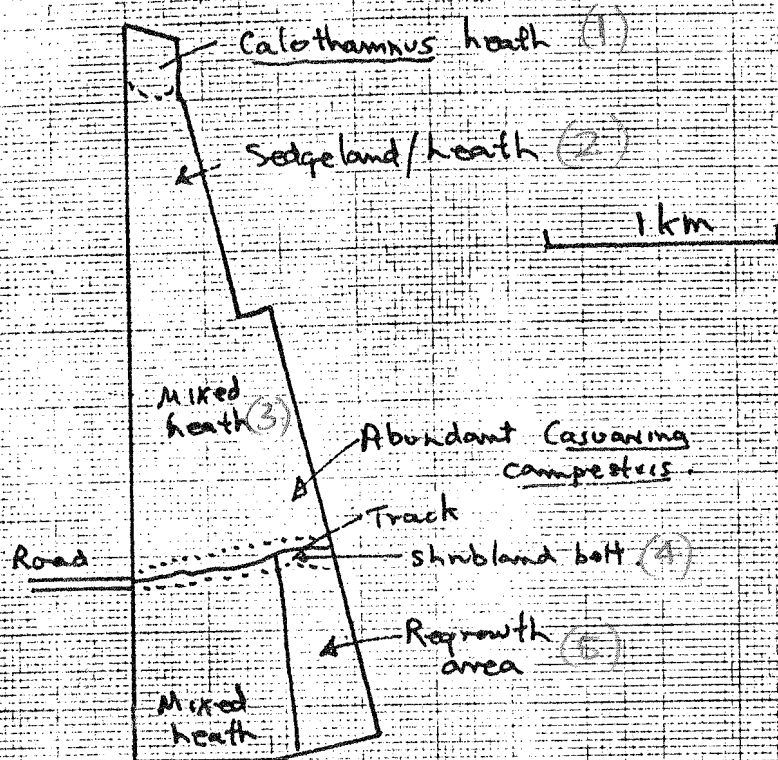 Calothamnus heath (1)
Sedgeland/heath (2)
1 km
Mixed
heath (3)
Abundant Casuarina
campestris.
Track
Road
Shrubland belt (4)
Regrowth (5)
area
Mixed
heath